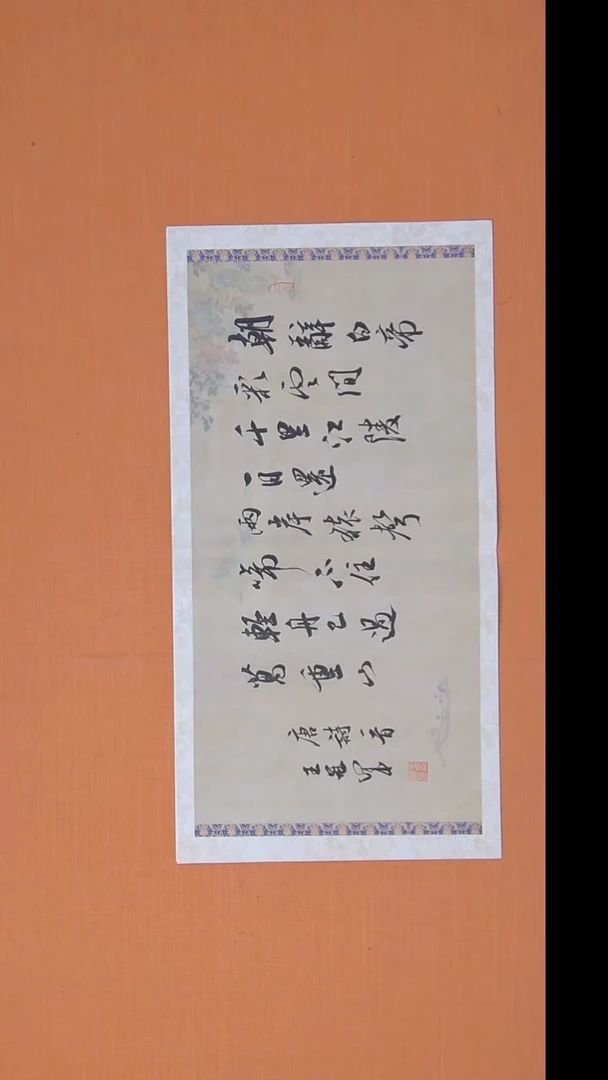 朝辭白帝
彩雲間
千里江陵
一日還
兩岸猿聲
啼不住
輕舟已過
萬重山
唐詩一首
王